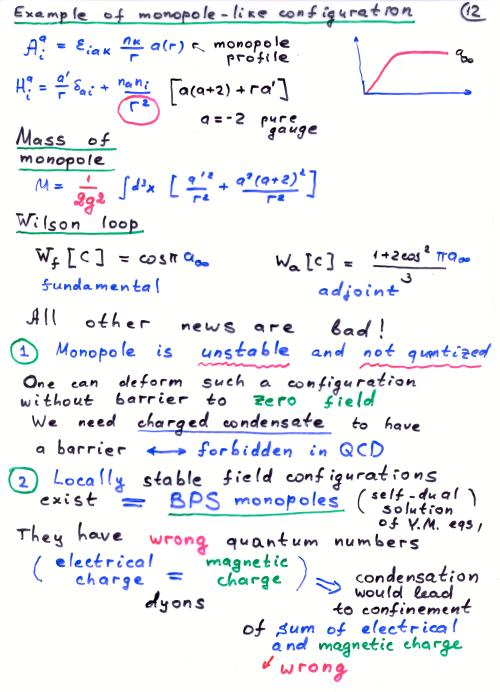 Example of monopole-like configuration 12
A_i^a = ε_iak n_k/r a(r) ← monopole profile
a∞
H_i^a = a'/r δ_ai + n_a n_i/r² [a(a+2) + ra']
a=-2 pure gauge
Mass of monopole
M = 1/2g² ∫d³x [a'²/r² + a²(a+2)²/r²]
Wilson loop
W_f [C] = cosπ a∞
fundamental
W_a [C] = 1+2cos² πa∞ / 3
adjoint
All other news are bad!
1 Monopole is unstable and not quantized
One can deform such a configuration
without barrier to zero field
We need charged condensate to have
a barrier ↔ forbidden in QCD
2 Locally stable field configurations
exist = BPS monopoles (self-dual solution of Y.M. eqs,)
They have wrong quantum numbers
(electrical charge = magnetic charge) ⇒ condensation
dyons
would lead
to confinement
of sum of electrical
and magnetic charge
↙ wrong